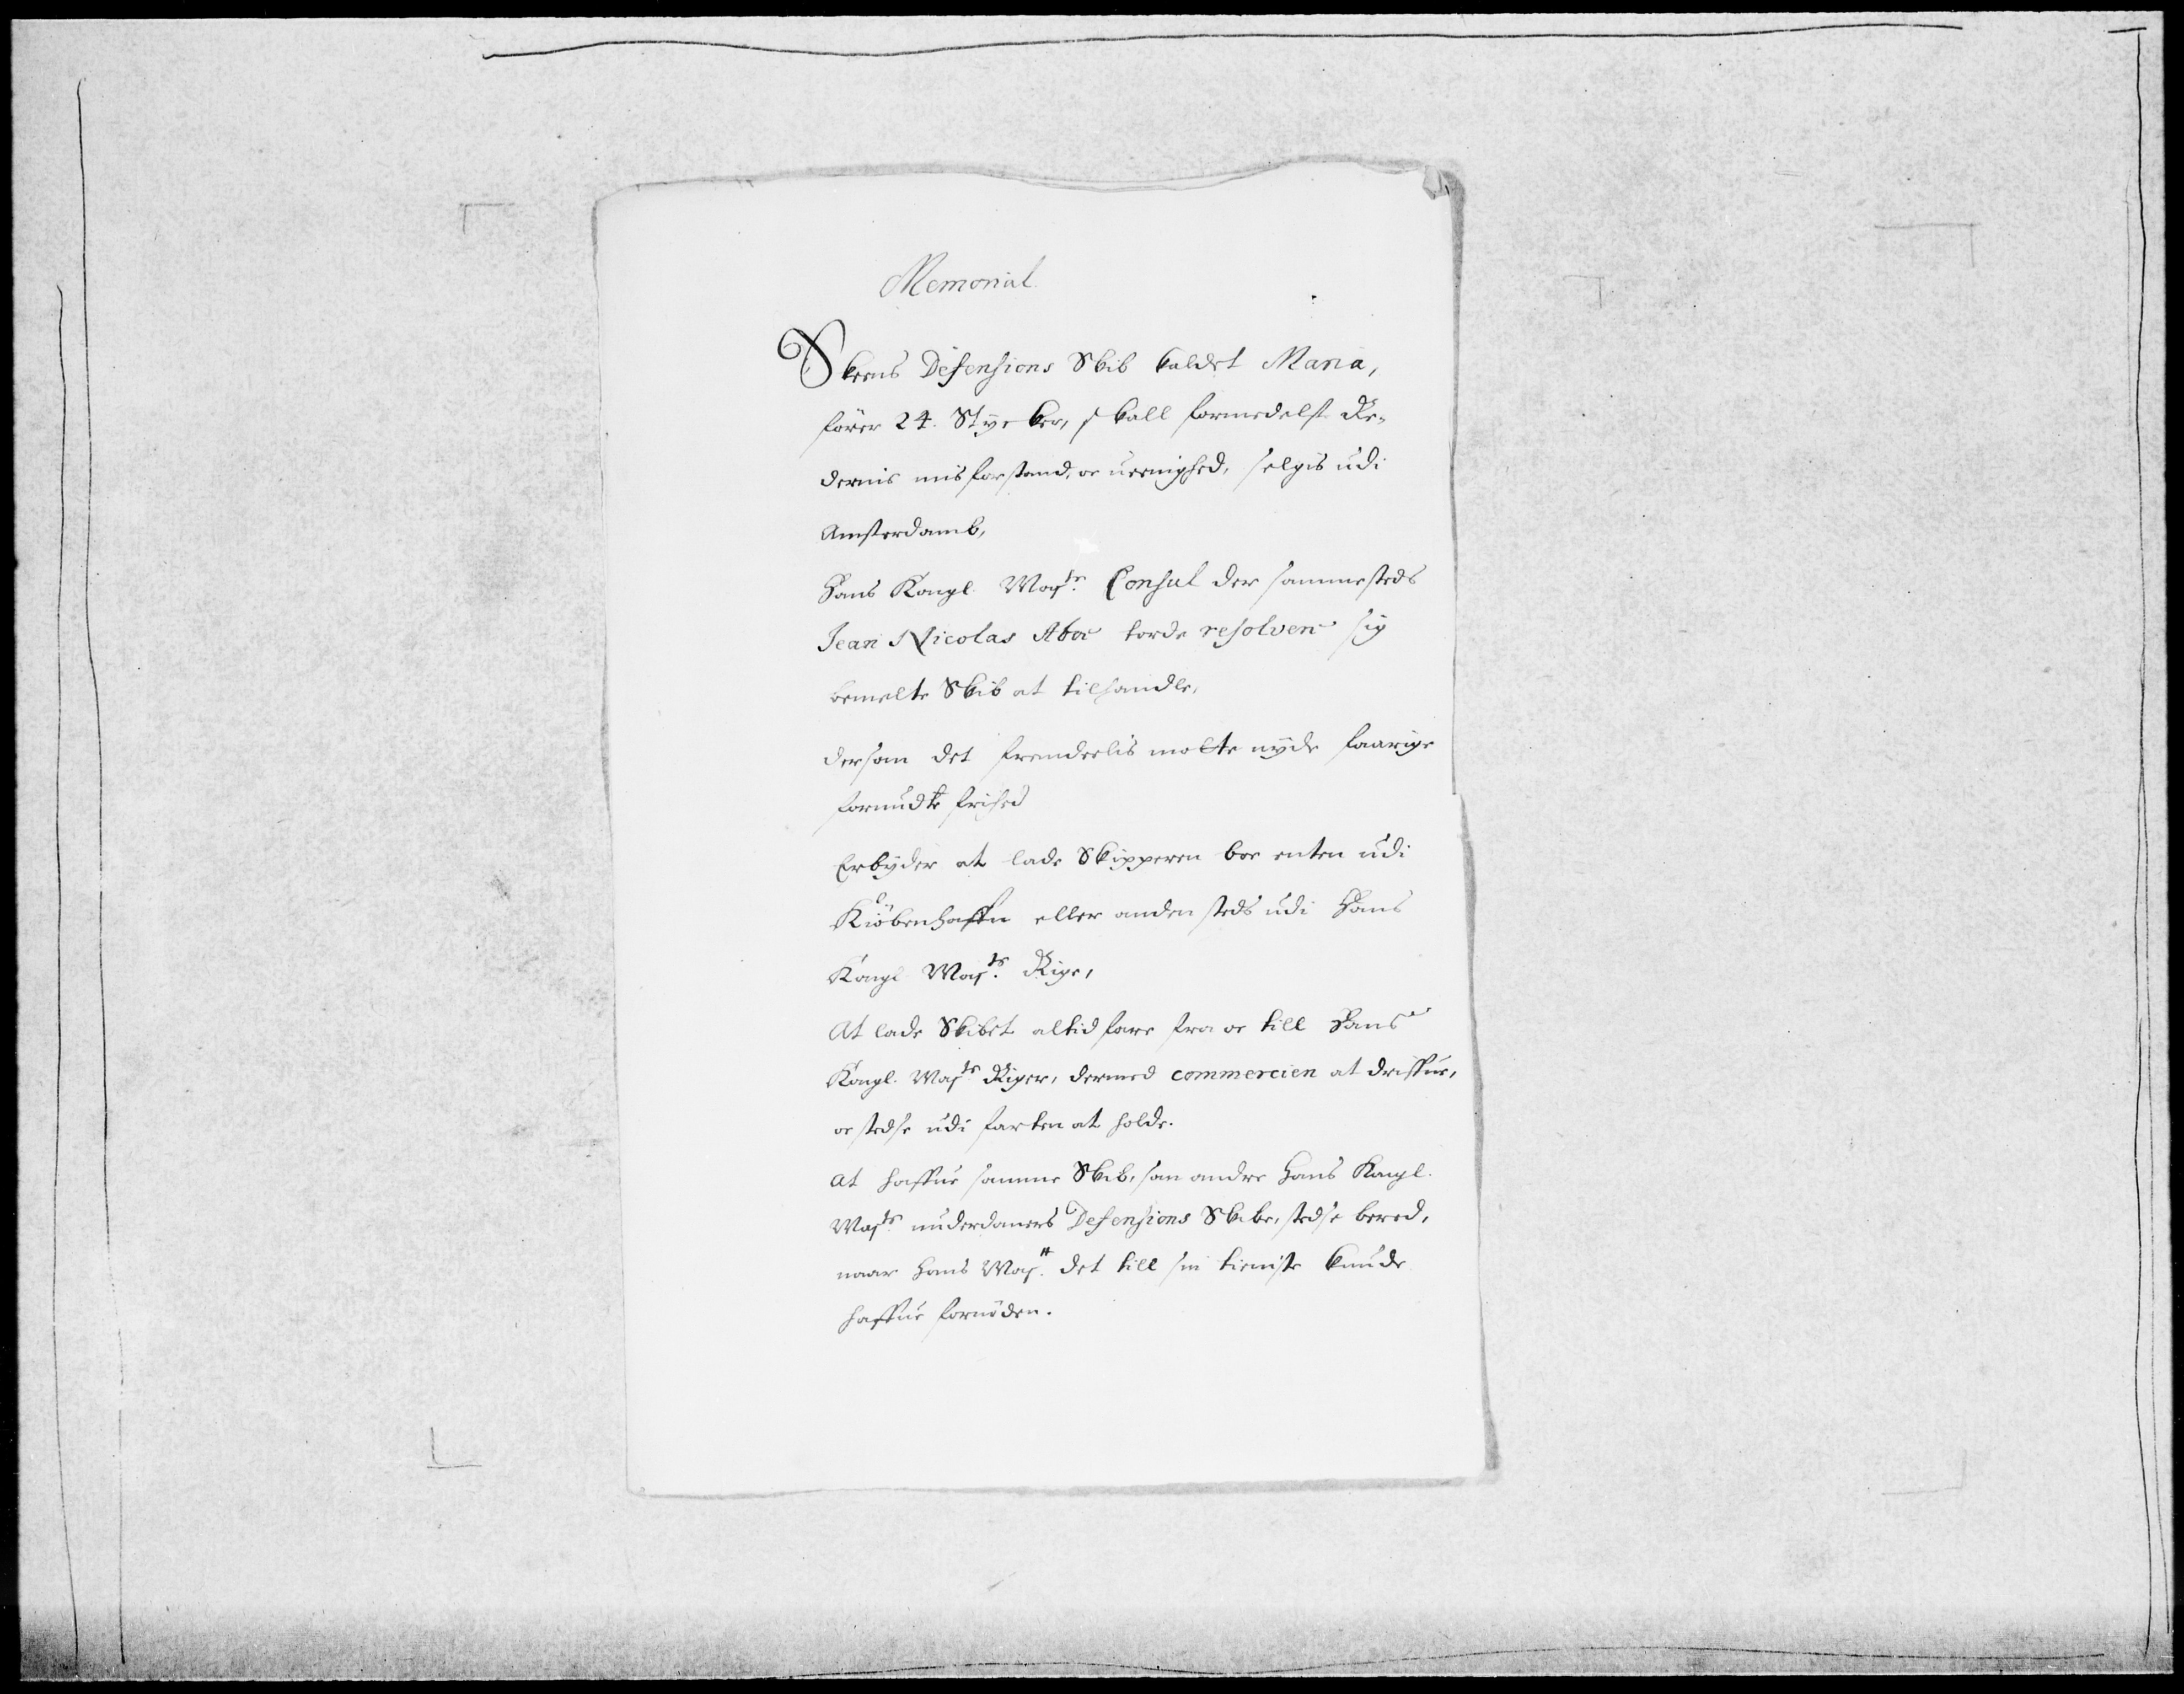 Memorial.
Skeens Defensions Skib kaldet Maria,
förer 24. Stycker, skall formedelst Re-
dernis misforstand, oc uenighed, selgis udi
Amsterdamb,
Hans Kongl. Majts. Consul der sammesteds
Jean Nicolas Aboe torde resolvere sig
bemelte Skib at tilhandle,
dersom det fremdeelis motte nyde faarige
fornudte frihed
Erbyder at lade Skipperen boe enten udi
Kiöbenhaffn eller andensteds udi Hans
Kongl Majts. Rige,
At lade Skibet altid fare fra oc till Hans
Kongl. Majts Riger, dermed commercien at driffue,
oc stedse udi farten at holde.
at haffue samme Skib, som andre Hans Kongl.
Majts. underdaners Defensions Skibe, stedse bered,
naar Hans Majtt. det till sin tieniste kunde
haffue fornöden.